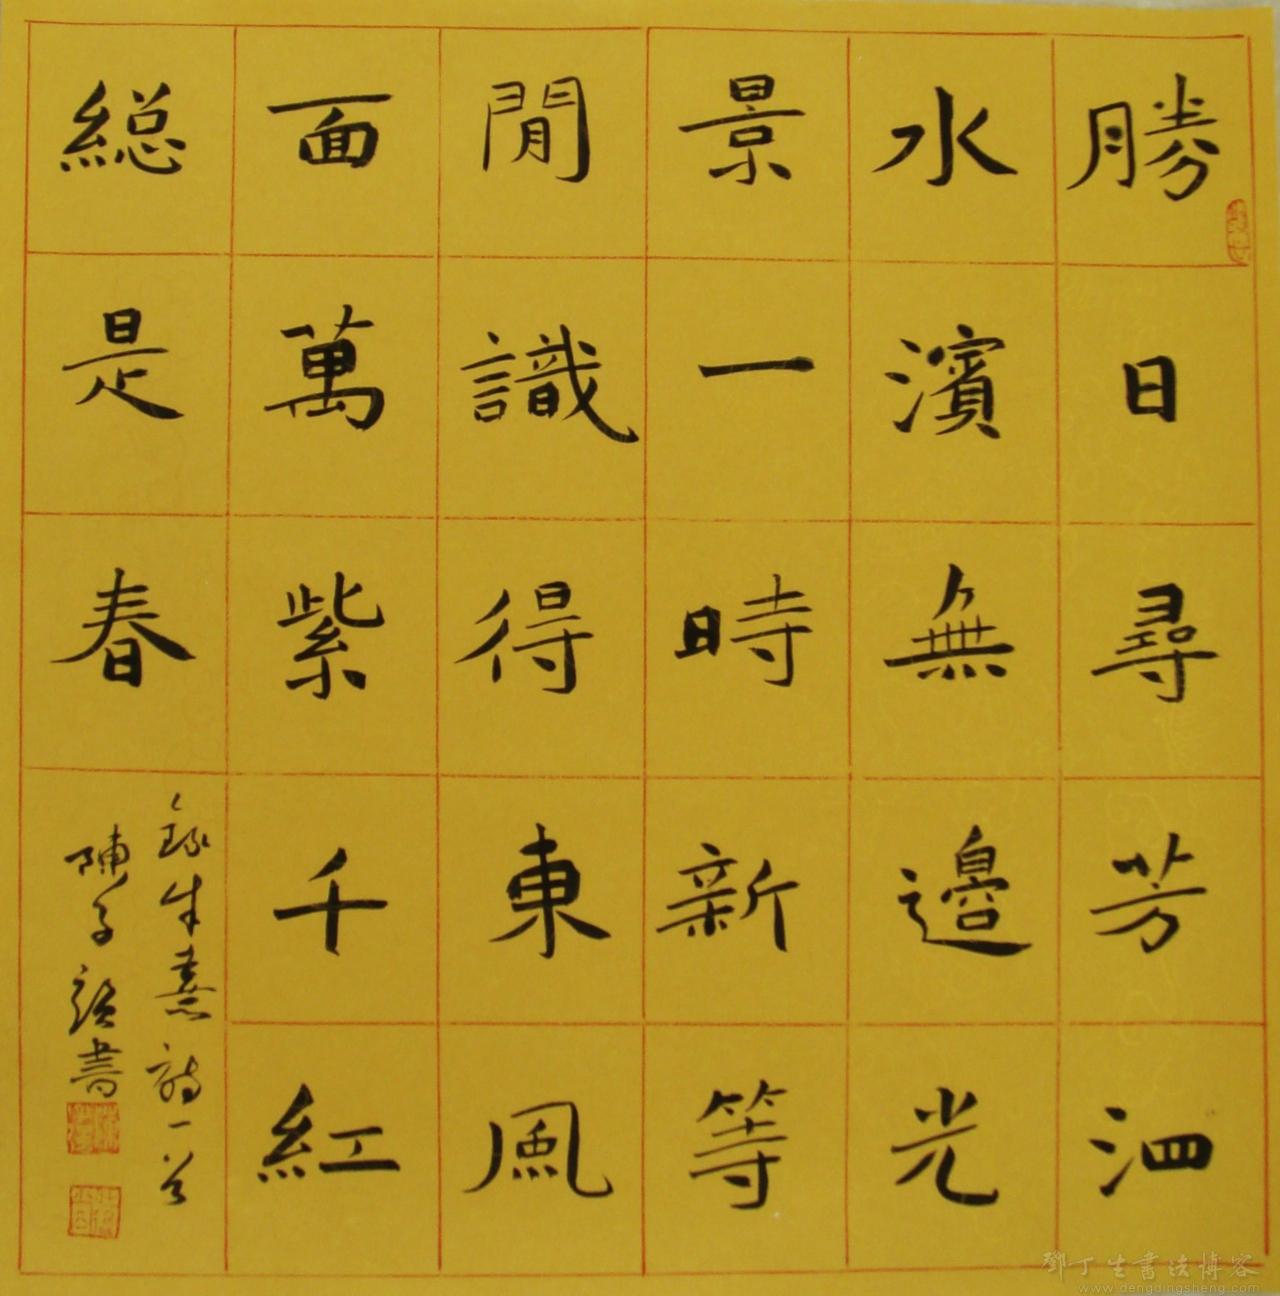 勝日尋芳泗
水濱無邊光
景一時新等
閒識得東風
面萬紫千紅
総是春
錄朱熹詩一首
陳子書
鄧丁生書法博客
www.dengdingsheng.com